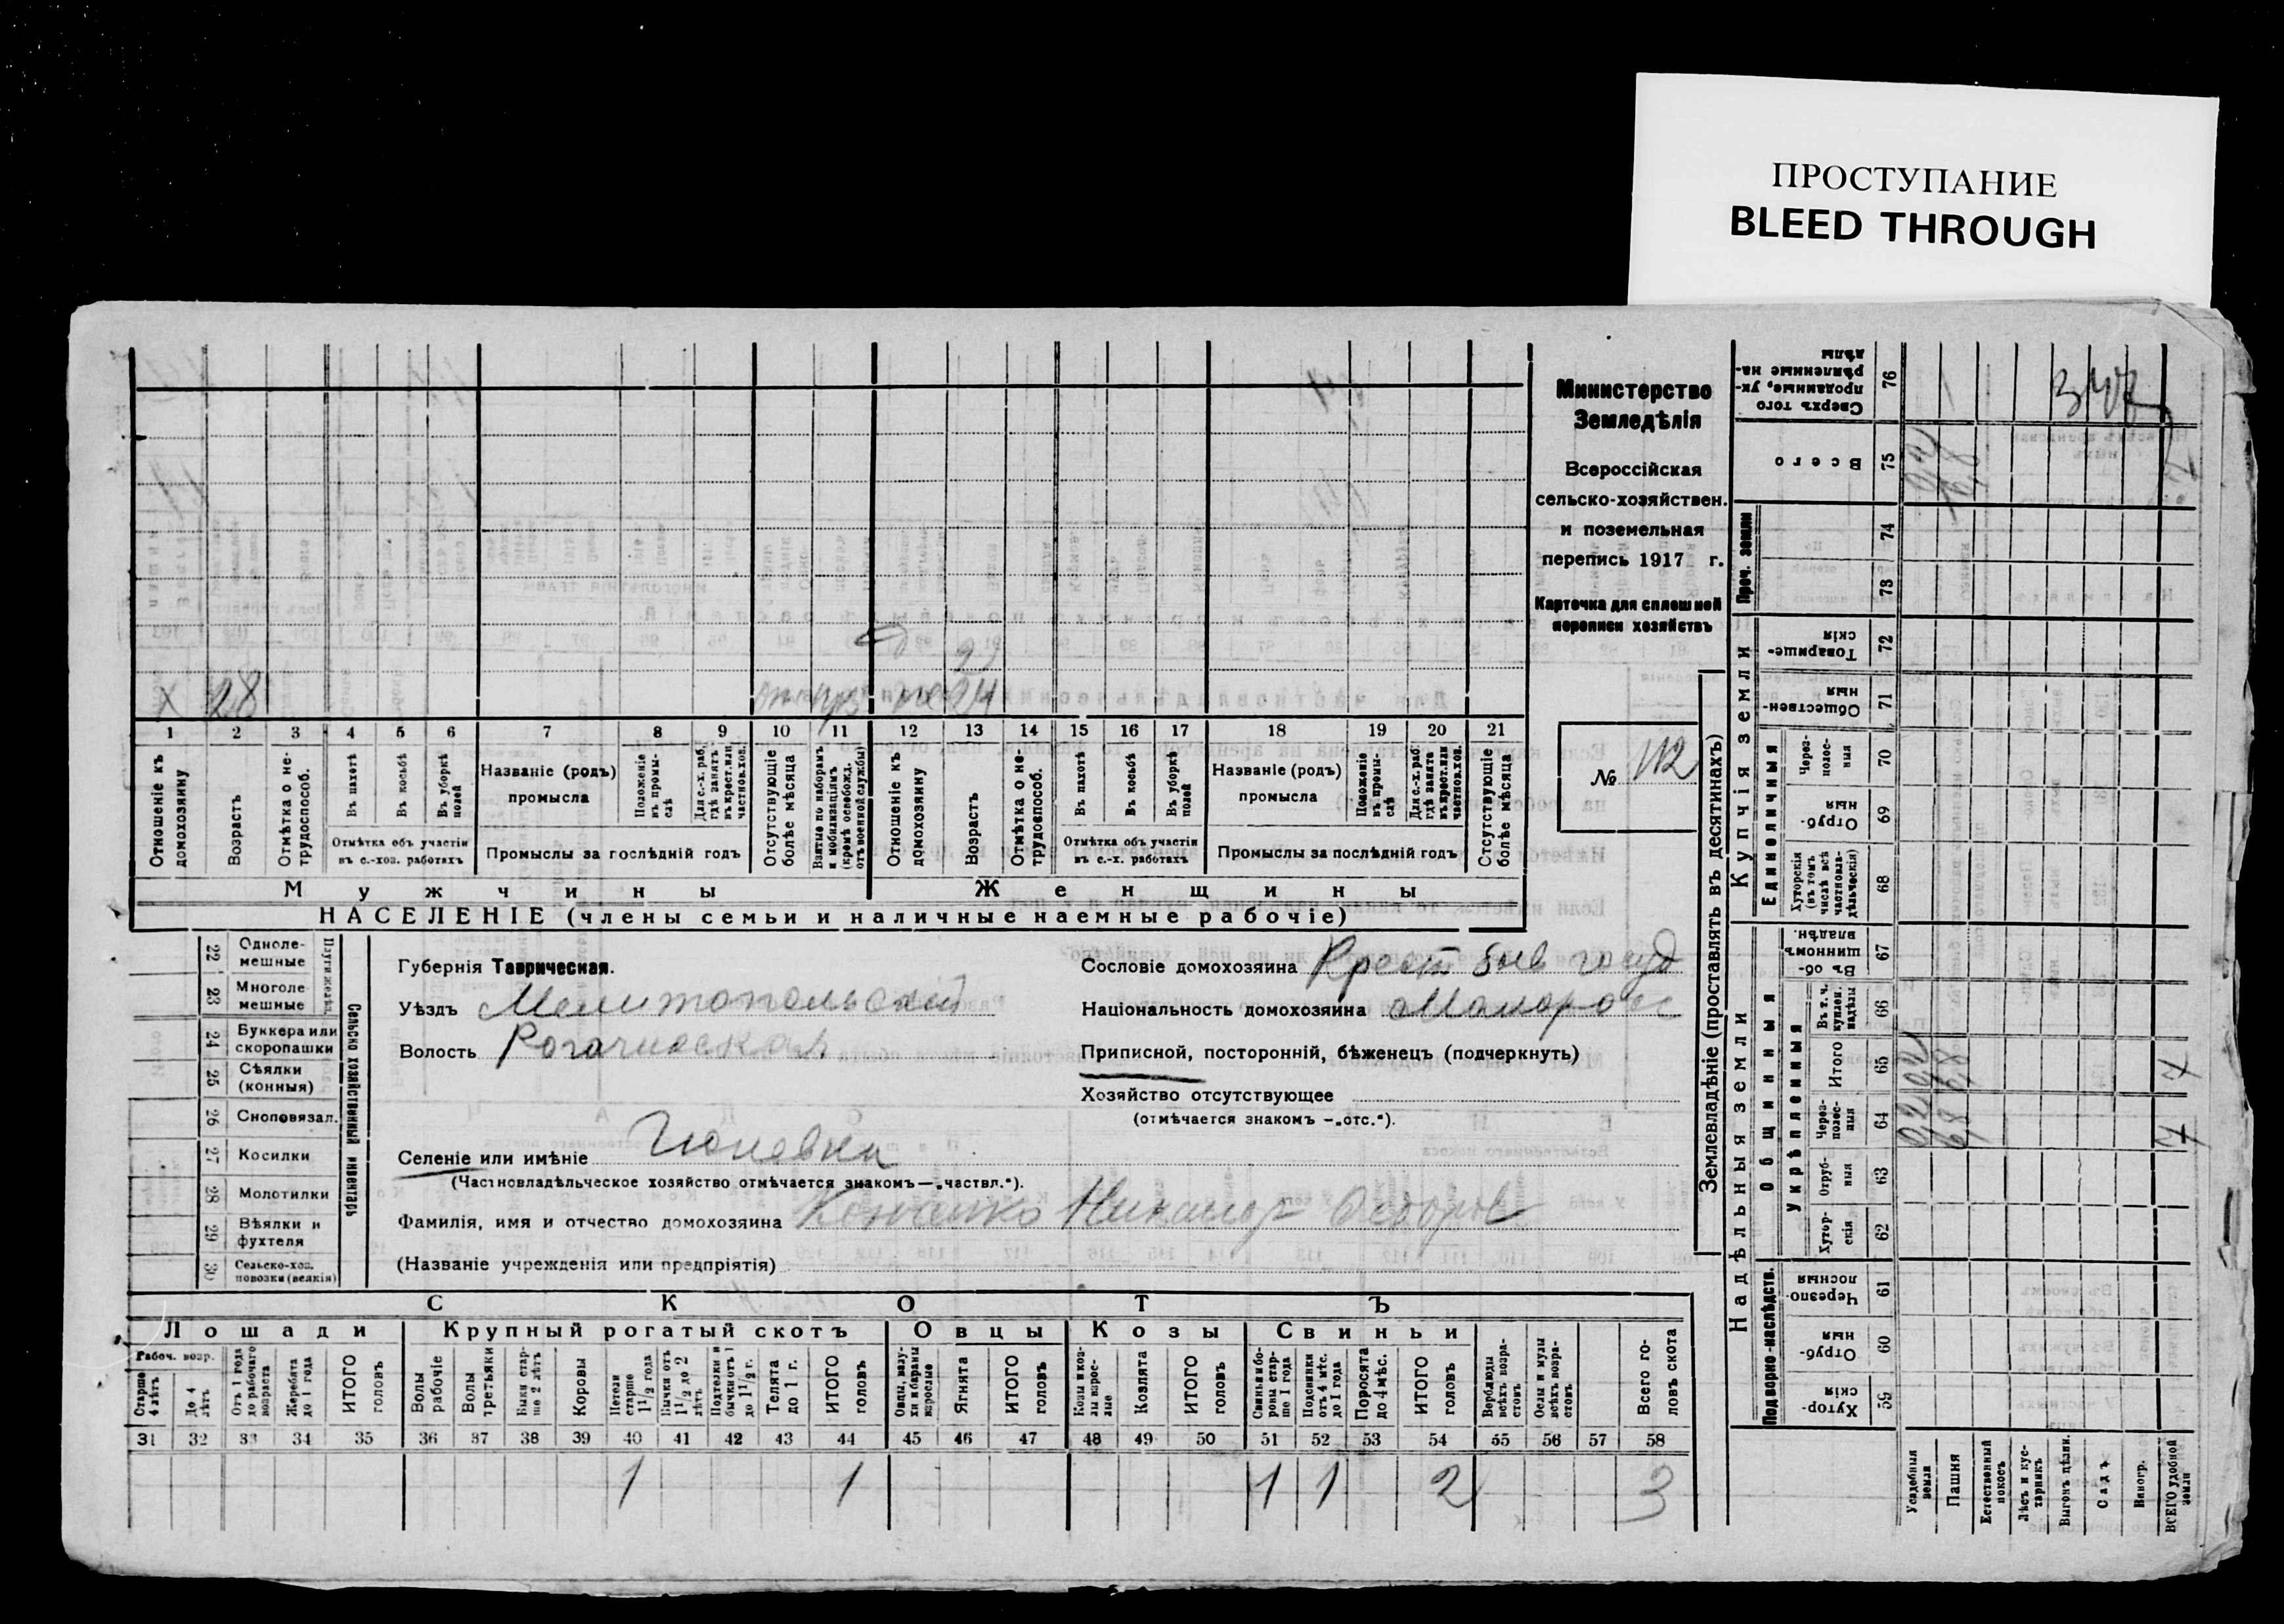 ПРОСТУПАНИЕ
BLEED THROUGH
Министерство
Земледѣлія
Всероссійская
сельско-хозяйствен.
и поземельная
перепись 1917 г.
Карточка для сплошной
переписи хозяйствъ
№ 112
х 28
24
1 2 3 4 5 6 7 8 9 10 11 12 13 14 15 16 17 18 19 20 21
Отношеніе къ домохозяину
Возрастъ
Отмѣтка о не-трудоспособ.
Въ пахотѣ
Въ косьбѣ
Въ уборкѣ полей
Отмѣтка объ участіи въ с.-хоз. работахъ
Названіе (родъ) промысла
Положеніе въ промы-слѣ
Для с.-х. раб. гдѣ занятъ въ крест. или частнов. хоз.
Промыслы за послѣдній годъ
Отсутствующіе болѣе мѣсяца
Взятые по наборамъ и мобилизаціямъ (кромѣ освобожд. отъ военной службы)
Отношеніе къ домохозяину
Возрастъ
Отмѣтка о не-трудоспособ.
Въ пахотѣ
Въ косьбѣ
Въ уборкѣ полей
Отмѣтка объ участіи въ с.-х. работахъ
Названіе (родъ) промысла
Положеніе въ промы-слѣ
Для с.-х. раб. гдѣ занята въ крест. или частнов. хоз.
Промыслы за послѣдній годъ
Отсутствующіе болѣе мѣсяца
Мужчины
Женщины
НАСЕЛЕНІЕ (члены семьи и наличные наемные рабочіе)
Сельско хозяйственный инвентарь
22 Одноле-мешные
23 Многоле мешные
24 Буккера или скоропашки
25 Сѣялки (конныя)
26 Сноповязал.
27 Косилки
28 Молотилки
29 Вѣялки и фухтеля
30 Сельско-хоз. повозки (всякія)
Губернія Таврическая.
Уѣздъ Мелитопольский
Волость Рогачикская
Сословіе домохозяина Крест быв госуд
Національность домохозяина Малорос
Приписной, посторонній, бѣженецъ (подчеркнуть)
Хозяйство отсутствующее
(отмѣчается знакомъ —„отс.“).
Селеніе или имѣніе
(Частновладѣльческое хозяйство отмѣчается знакомъ—„частвл.“).
Фамилія, имя и отчество домохозяина Никанор
(Названіе учрежденія или предпріятія)
СКОТЪ
Лошади
Крупный рогатый скотъ
Овцы
Козы
Свиньи
Рабоч. возр.
Старше 4 лѣтъ
До 4 лѣтъ
Отъ 1 года до рабочаго возраста
Жеребята до 1 года
ИТОГО головъ
Волы рабочіе
Волы третьяки
Быки стар-ше 2 лѣтъ
Коровы
Нетели старше 1 1/2 года
Бычки отъ 1 1/2 до 2 лѣтъ
Подтелки и бычки отъ 1 до 1 1/2 г.
Телята до 1 г.
ИТОГО головъ
Овцы, валу-хи и бараны взрослые
Ягнята
ИТОГО головъ
Козы и коз-лы взрос-лые
Козлята
ИТОГО головъ
Свиньи и бо-ровы стар-ше 1 года
Подсвинки отъ 4 мѣс. до 1 года
Поросята до 4 мѣс.
ИТОГО головъ
Верблюды всѣхъ возра-стовъ
Ослы и мулы всѣхъ возра-стовъ
Всего го-ловъ скота
31 32 33 34 35 36 37 38 39 40 41 42 43 44 45 46 47 48 49 50 51 52 53 54 55 56 57 58
1 1 1 1 2 3
Землевладѣніе (проставлять въ десятинахъ)
Надѣльныя земли
Купчія земли
Проч. земли
Сверхъ того проданные, ук-рѣпленные на-дѣлы 76
Всего 75
74
73
Товарище-скія 72
Обществен-ныя 71
Единоличныя
Через-полос-ныя 70
Отруб-ныя 69
Хуторскія (въ томъ числѣ всѣ частновла-дѣльческія) 68
Общинныя
Въ об-щинномъ владѣн. 67
Укрѣпленныя
Въ т. ч. куплен. надѣлы 66
Итого 65
Через-полос-ныя 64
Отруб-ныя 63
Хутор-скія 62
Подворно-наслѣдств.
Черезпо-лосныя 61
Отруб-ныя 60
Хутор-скія 59
Усадебныя земли
Пашня
Естественный покосъ
Лѣсъ и кус-тарникъ
Выгонъ цѣлин.
Садъ
Виногр.
ВСЕГО удобной земли